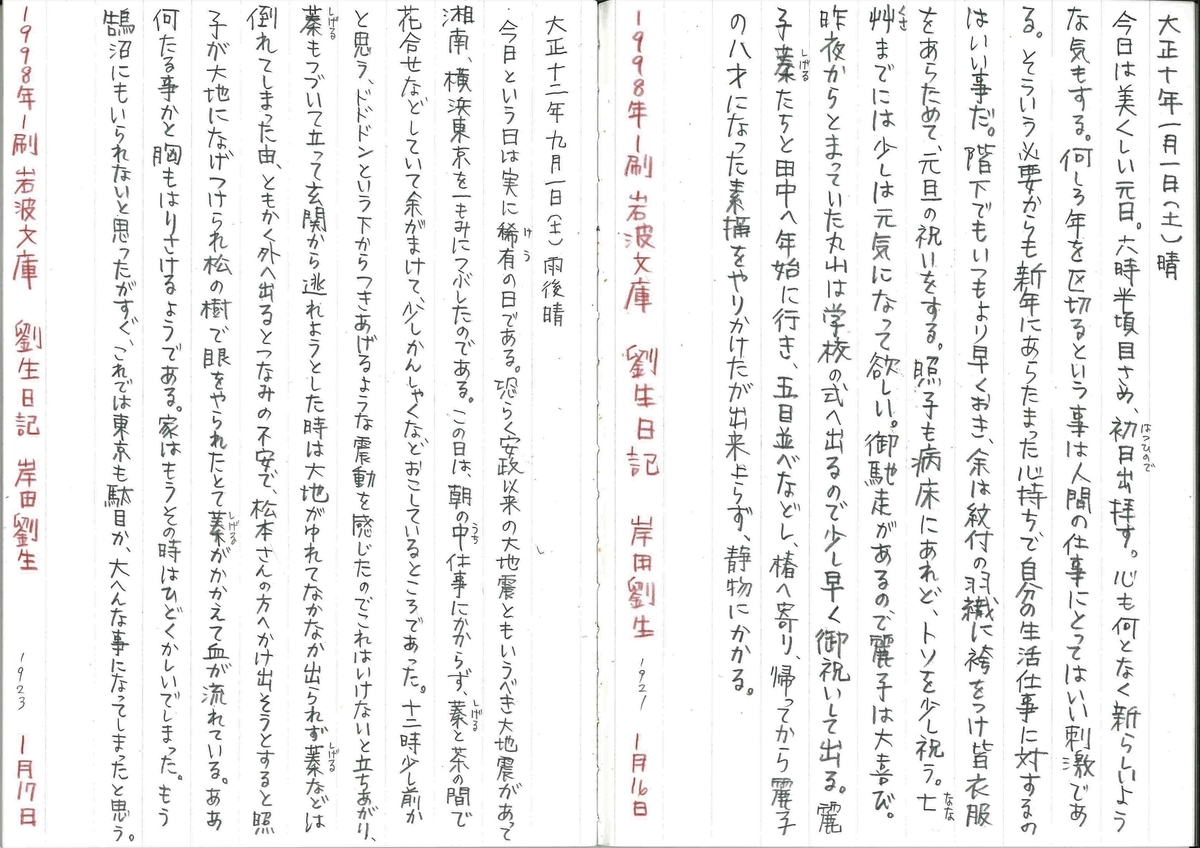 大正十年一月一日(土)晴
はつひので
今日は美くしい元日。六時半頃目さめ、初日出拝す。心も何となく新らしいよう
な気もする。何しろ年を区切るという事は人間の仕事にとってはいい刺激であ
る。そういう必要からも新年にあらたまった心持ちで自分の生活仕事に対するの
はいい事だ。階下でもいつもより早くおき、余は紋付の羽織に袴をつけ皆衣服
なな
をあらためて、元旦の祝いをする。照子も病床にあれど、トソを少し祝う。七
くさ
艸までには少しは元気になって欲しい。御馳走があるので麗子は大喜び。
昨夜からとまっていた丸山は学校の式へ出るので少し早く御祝いして出る。麗
しげる
子蓁たちと田中へ年始に行き、五目並べなどし、椿へ寄り、帰ってから麗子
の八才になった素描をやりかけたが出来上らず、静物にかかる。
1998年1刷 岩波文庫 劉生日記 岸田劉生 1921 1月16日
大正十二年九月一日(土)雨後晴
けう
今日という日は実に稀有の日である。恐らく安政以来の大地震ともいうべき大地震があって
うち しげる
湘南、横浜東京を一もみにつぶしたのである。この日は、朝の中仕事にかからず、蓁と茶の間で
花合せなどしていて余がまけて、少しかんしゃくなどおこしているところであった。十二時少し前か
と思う、ドドドンという下からつきあげるような震動を感じたのでこれはいけないと立ちあがり、
しげる しげる
蓁もつづいて立って玄関から逃れようとした時は大地がゆれてなかなか出られず蓁などは
倒れてしまった由、ともかく外へ出るとつなみの不安で、松本さんの方へかけ出そうとすると照
しげる
子が大地になげつけられ松の樹で眼をやられたとて蓁がかかえて血が流れている。ああ
何たる事かと胸もはりさけるようである。家はもうその時はひどくかしいでしまった。もう
鵠沼にもいられないと思ったがすぐ、これでは東京も駄目か、大へんな事になってしまったと思う。
1998年1刷 岩波文庫 劉生日記 岸田劉生 1923 1月17日